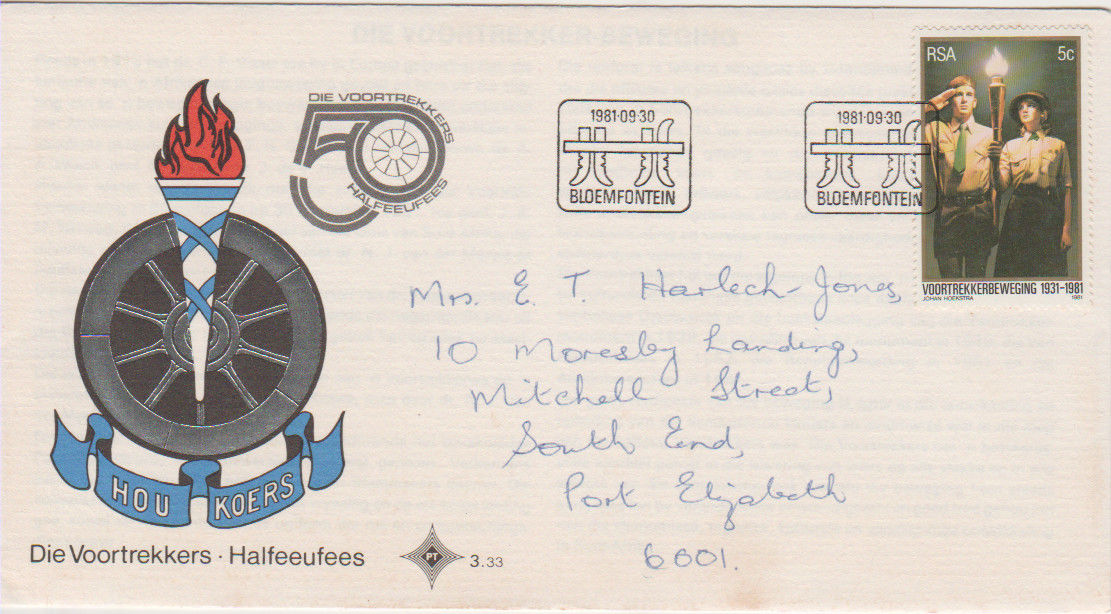 DIE VOORTREKKERS
50
HALFEEUFEES
1981·09·30
BLOEMFONTEIN
1981·09·30
BLOEMFONTEIN
RSA 5c
VOORTREKKERBEWEGING 1931-1981
JOHAN HOEKSTRA 1981
Mrs. E. T. Harlech-Jones,
10 Moresby Landing,
Mitchell Street,
South End,
Port Elizabeth
6001.
HOU KOERS
Die Voortrekkers · Halfeeufees
PT
3.33